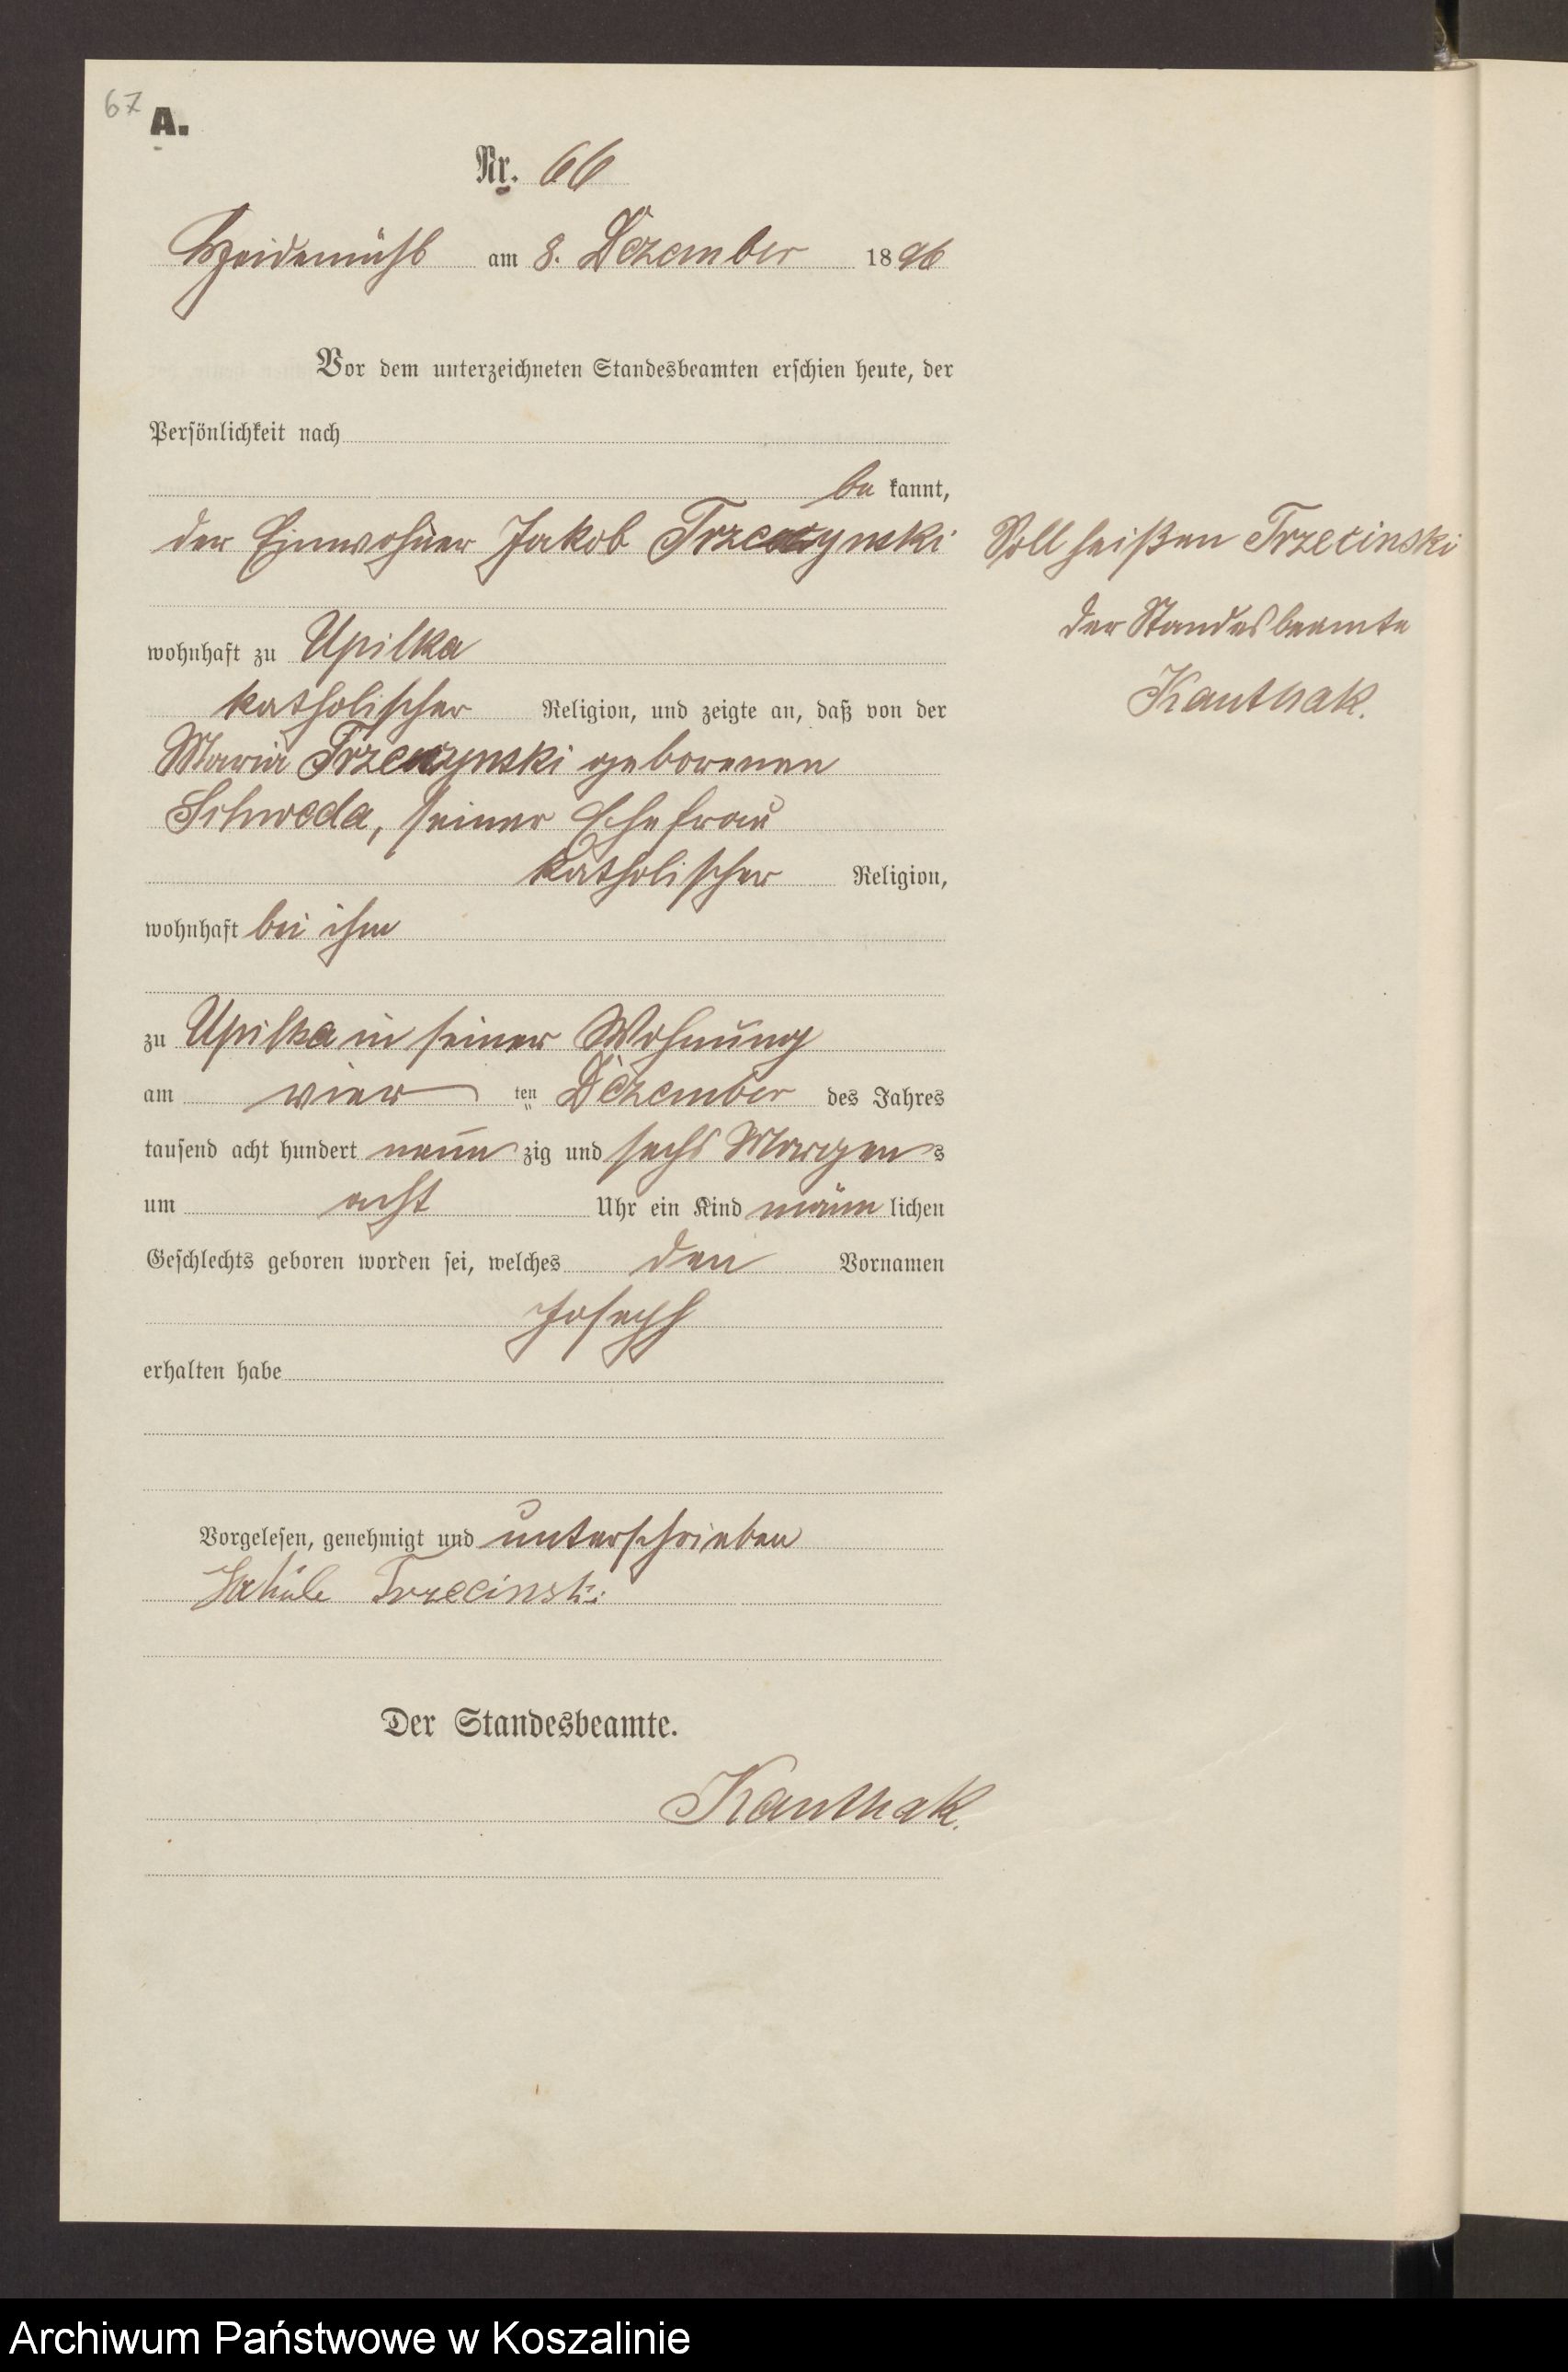 67 A.
Nr. 66
Heidemühl am 8. Dezember 1896
Vor dem unterzeichneten Standesbeamten erschien heute, der
Persönlichkeit nach
be kannt,
der Einwohner Jakob Trzeczynski Soll heißen Trzecinski
der Standesbeamte
wohnhaft zu Upilka
Kanthak.
katholischer Religion, und zeigte an, daß von der
Maria Trzeczynski geborenen
Schweda, seiner Ehefrau
katholischer Religion,
wohnhaft bei ihm
zu Upilka in seiner Wohnung
am vier ten Dezember des Jahres
tausend acht hundert neun zig und sechs Morgens
um acht Uhr ein Kind männ lichen
Geschlechts geboren worden sei, welches den Vornamen
Joseph
erhalten habe
Vorgelesen, genehmigt und unterschrieben
Trzecinski
Der Standesbeamte.
Kanthak.
Archiwum Państwowe w Koszalinie